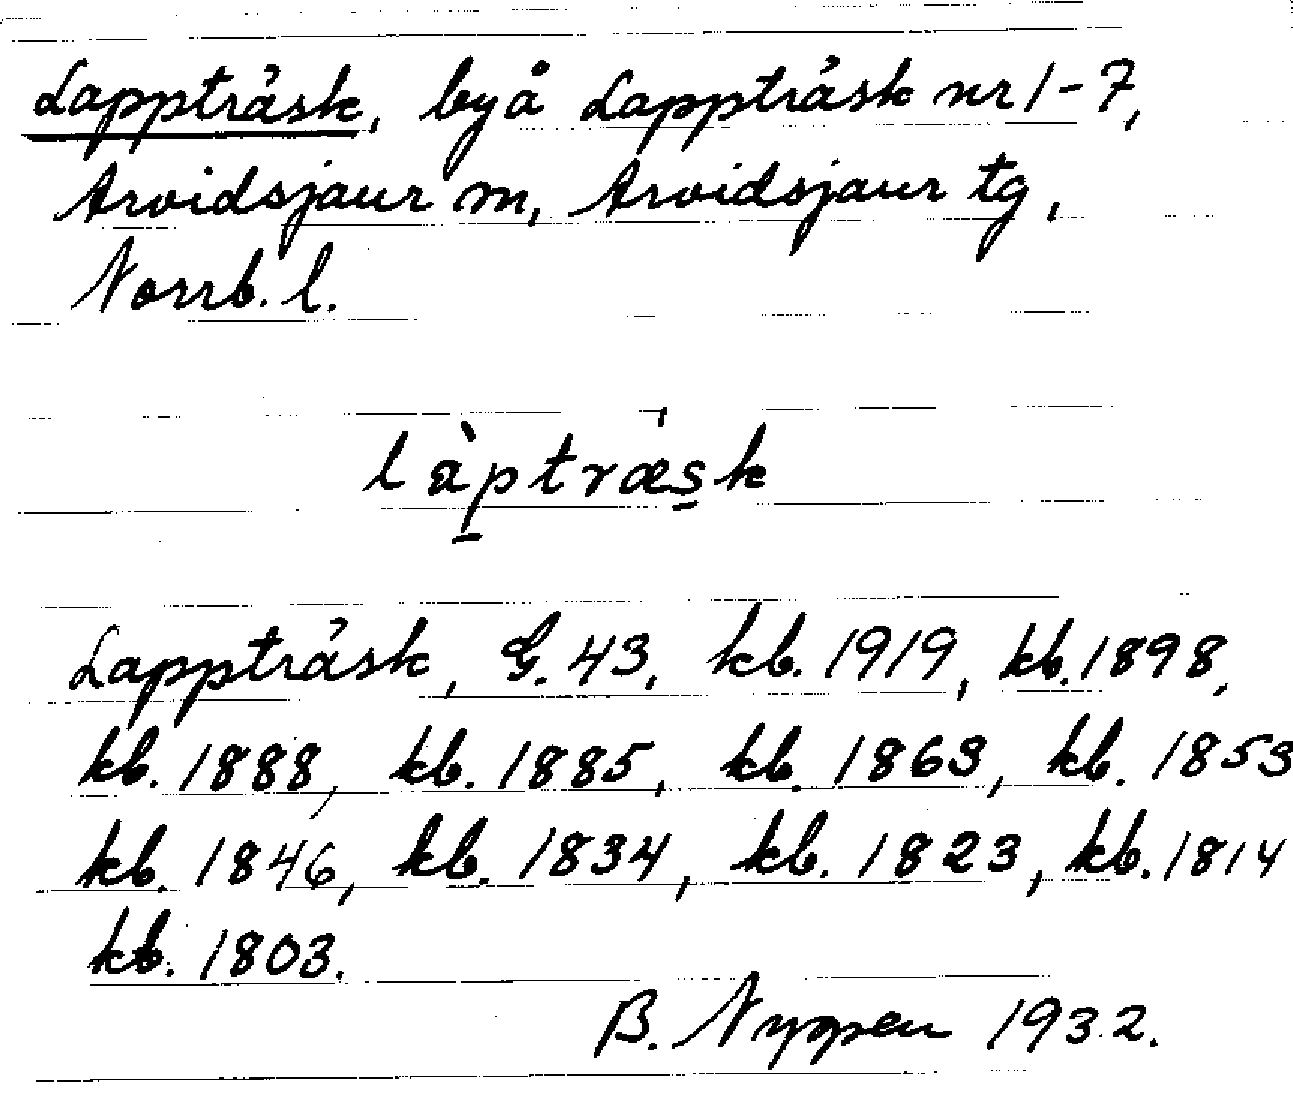 Lappträsk, by å Lappträsk nr 1-7,
Arvidsjaur m, Arvidsjaur tg,
Norrb. l.
làptræsk
Lappträsk, G. 43, kb. 1919, kb. 1898,
kb. 1888, kb. 1885, kb. 1863, kb. 1853
kb. 1846, kb. 1834, kb. 1823, kb. 1814
kb. 1803.
B. Nyppen 1932.